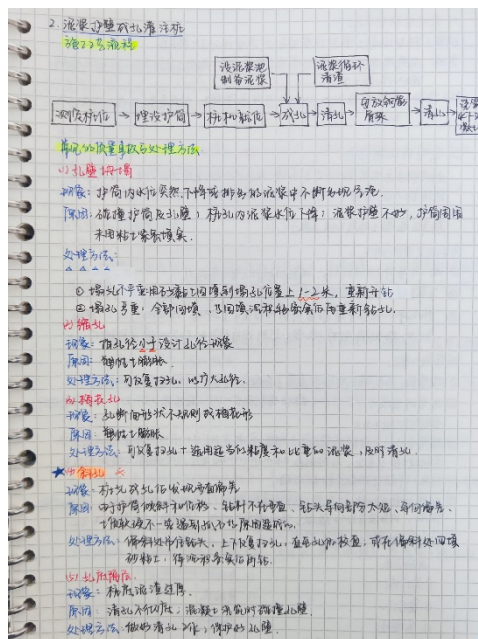 2. 泥浆护壁成孔灌注桩
施工工艺流程
设泥浆池 制备泥浆
泥浆循环 清渣
测定桩位 → 埋设护筒 → 桩机就位 → 成孔 → 清孔 → 安放钢筋骨架 → 清孔 → 浇筑水下混凝土
常见的质量事故与处理方法
(1) 孔壁坍塌
现象：护筒内水位突然下降或排出的泥浆中不断出现气泡.
原因：碰撞护筒及孔壁；桩孔内泥浆水位下降；泥浆护壁不好，护筒周围
未用粘土紧密填实.
处理方法：
① 塌孔不严重用砂黏土回填到塌孔位置上1-2米，重新开钻
② 塌孔严重：全部回填，等回填沉积密实后再重新钻孔.
(2) 缩孔
现象：指孔径小于设计孔径现象
原因：塑性土膨胀.
处理方法：可反复扫孔，以扩大孔径.
(3) 梅花孔
现象：孔断面形状不规则成梅花形
原因：塑性土膨胀
处理方法：可反复扫孔+选用适当的粘度和比重的泥浆，及时清孔.
(4) 斜孔
现象：桩孔成孔后发现垂直偏差
原因：由于护筒倾斜和位移、钻杆不垂直、钻头导向部分太短、导向偏差、
土质软硬不一或遇到孤石等原因造成的.
处理方法：偏斜处吊住钻头，上下反复扫孔，直至孔位校直，或在偏斜处回填
砂黏土，待沉积密实后再钻.
(5) 孔底隔层.
现象：桩底泥渣过厚.
原因：清孔不彻底，混凝土浇筑时碰撞孔壁.
处理方法：做好清孔工作，保护好孔壁.